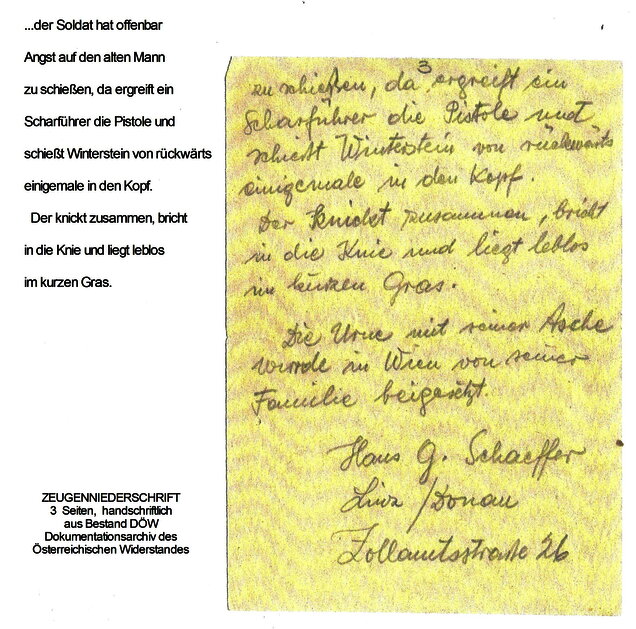 ...der Soldat hat offenbar
Angst auf den alten Mann
zu schießen, da ergreift ein
Scharführer die Pistole und
schießt Winterstein von rückwärts
einigemale in den Kopf.
Der knickt zusammen, bricht
in die Knie und liegt leblos
im kurzen Gras.
ZEUGENNIEDERSCHRIFT
3 Seiten, handschriftlich
aus Bestand DÖW
Dokumentationsarchiv des
Österreichischen Widerstandes
3
zu schießen, da ergreift ein
Scharführer die Pistole und
schießt Winterstein von rückwärts
einigemale in den Kopf.
Der knickt zusammen, bricht
in die Knie und liegt leblos
im kurzen Gras.
Die Urne mit seiner Asche
wurde in Wien von seiner
Familie beigesetzt.
Hans G. Schaeffer
Linz / Donau
Zollamtsstraße 26